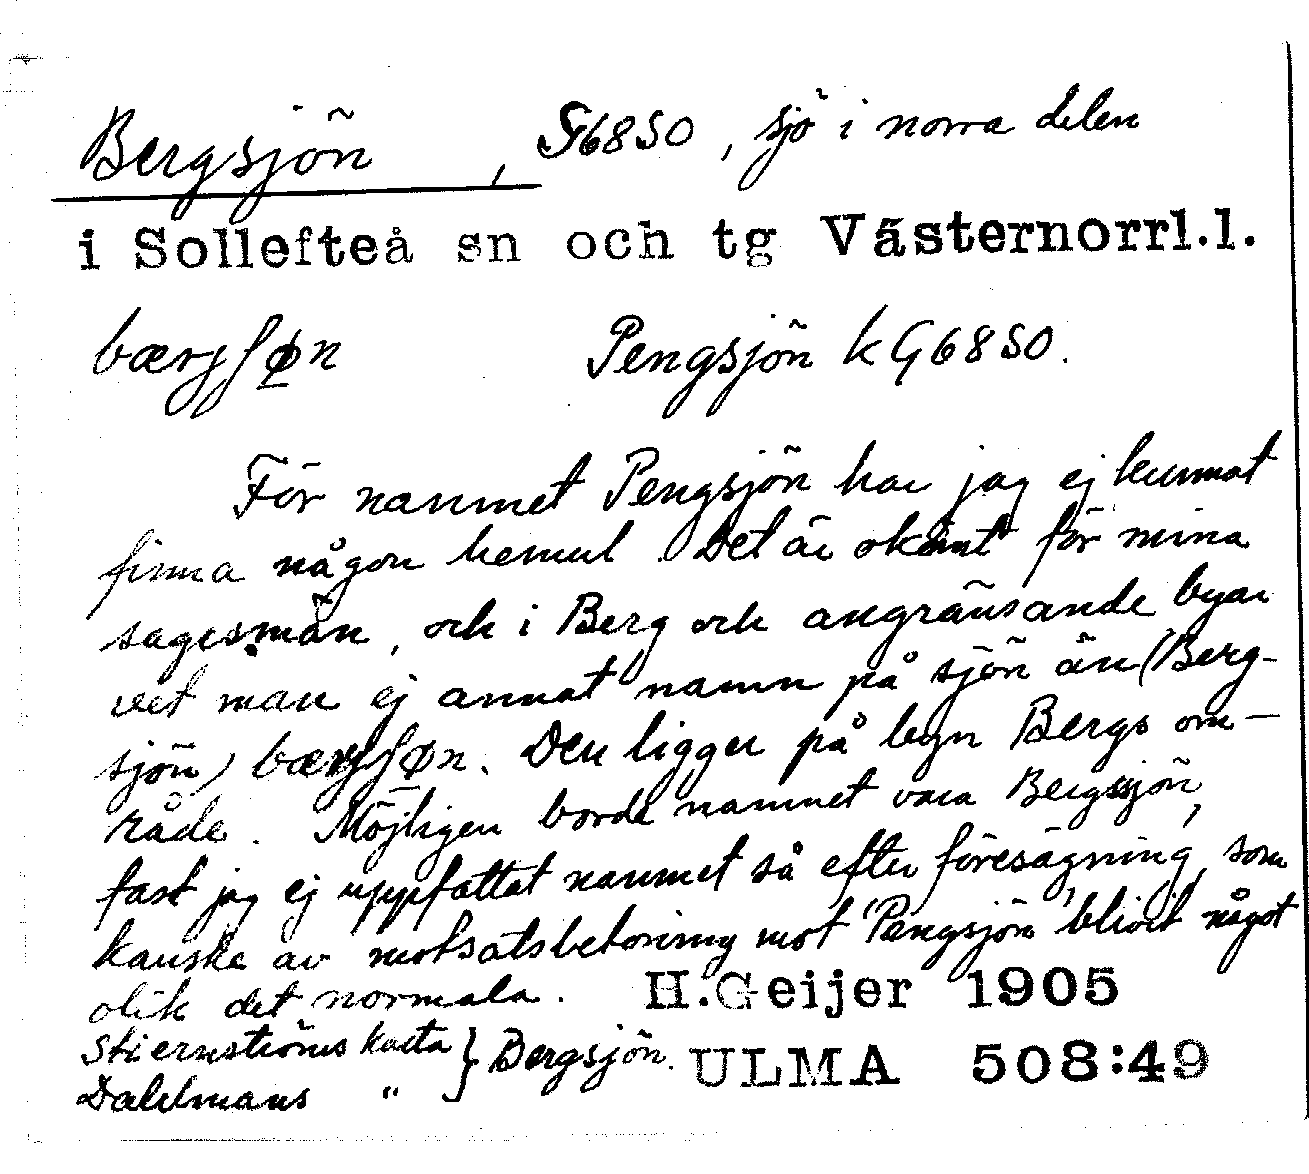 Bergsjön, G6850, sjö i norra delen
i Sollefteå sn och tg Västernorrl.l.
Pengsjön k G6850.
För namnet Pengsjön har jag ej kunnat
finna någon hemul. Det är okänt för mina
sagesmän, och i Berg och angränsande byar
vet man ej annat namn på sjön än (Berg-
sjön) bærgʃøn. Den ligger på byn Bergs om-
råde. Möjligen borde namnet vara Bergssjön,
fast jag ej uppfattat namnet så efter föresägning, som
kanske av motsatsbetoning mot 'Pengsjön' blivit något
olik det normala. H.Geijer 1905
Stiernströms karta } Bergsjön. ULMA 508:49
Dahlmans "